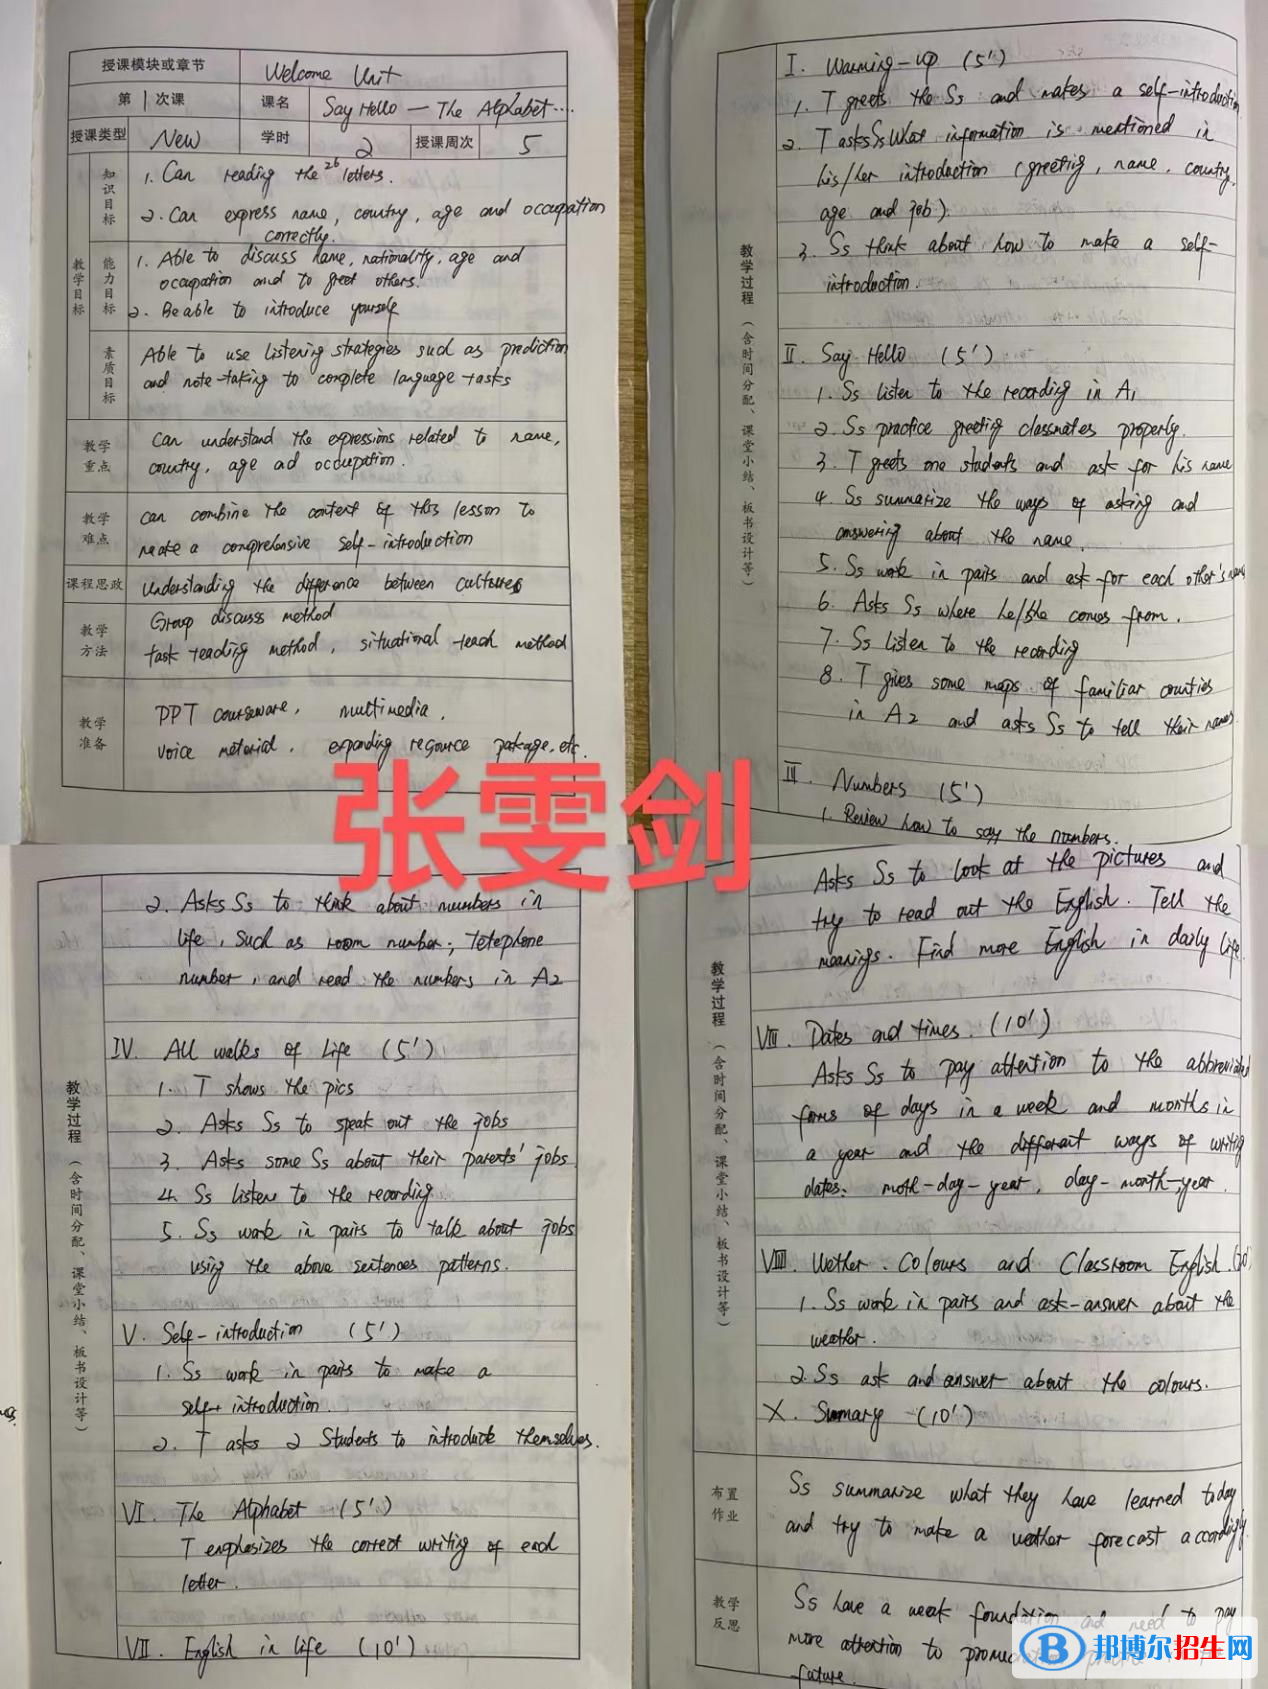 授课模块或章节 Welcome Unit
第 1 次课 课名 Say Hello — The Alphabet...
授课类型 New 学时 2 授课周次 5
教学目标
知识目标
1. Can reading the 26 letters.
2. Can express name, country, age and occupation
correctly.
能力目标
1. Able to discuss name, nationality, age and
occupation and to greet others.
2. Be able to introduce yourself
素质目标
Able to use listening strategies such as prediction
and note-taking to complete language tasks
教学重点
can understand the expressions related to name,
country, age ad occupation.
教学难点
can combine the content of this lesson to
make a comprehensive self-introduction
课程思政 Understanding the difference between cultures
教学方法
Group discuss method
task reading method, situational teach method
教学准备
PPT courseware, multimedia,
voice material, expanding resource package, etc.
教学过程（含时间分配、课堂小结、板书设计等）
I. Warming-up (5')
1. T greets the Ss and makes a self-introduction
2. T asks Ss what information is mentioned in
his/her introduction (greeting, name, country,
age and job).
3. Ss think about how to make a self-
introduction.
II. Say Hello (5')
1. Ss listen to the recording in A1
2. Ss practice greeting classmates properly.
3. T greets one students and ask for his name
4. Ss summarize the ways of asking and
answering about the name.
5. Ss work in pairs and ask for each other's name
6. Asks Ss where he/she comes from.
7. Ss listen to the recording
8. T gives some maps of familiar counties
in A2 and asks Ss to tell their names
III. Numbers (5')
1. Review how to say the numbers.
张雯剑
教学过程（含时间分配、课堂小结、板书设计等）
2. Asks Ss to think about numbers in
life, such as room number, Telephone
number, and read the numbers in A2
IV. All walks of Life (5')
1. T shows the pics
2. Asks Ss to speak out the jobs
3. Asks some Ss about their parents' jobs
4. Ss listen to the recording
5. Ss work in pairs to talk about jobs
using the above sentences patterns.
V. Self-introduction (5')
1. Ss work in pairs to make a
self-introduction.
2. T asks 2 Students to introduce themselves.
VI. The Alphabet (5')
T emphasizes the correct writing of each
letter.
VII. English in life (10')
教学过程（含时间分配、课堂小结、板书设计等）
Asks Ss to look at the pictures and
try to read out the English. Tell the
meanings. Find more English in daily life.
VIII. Dates and times. (10')
Asks Ss to pay attention to the abbreviated
forms of days in a week and months in
a year and the different ways of writing
dates: moth-day-year, day-month-year.
VIII. Wether. Colours and Classroom English. (10'
1. Ss work in pairs and ask-answer about the
weather.
2. Ss ask and answer about the colours.
X. Summary (10')
布置作业
Ss summarize what they have learned today
and try to make a weather forecast accordingly.
教学反思
Ss have a weak foundation and need to pay
more attention to
future.
邦博尔招生网